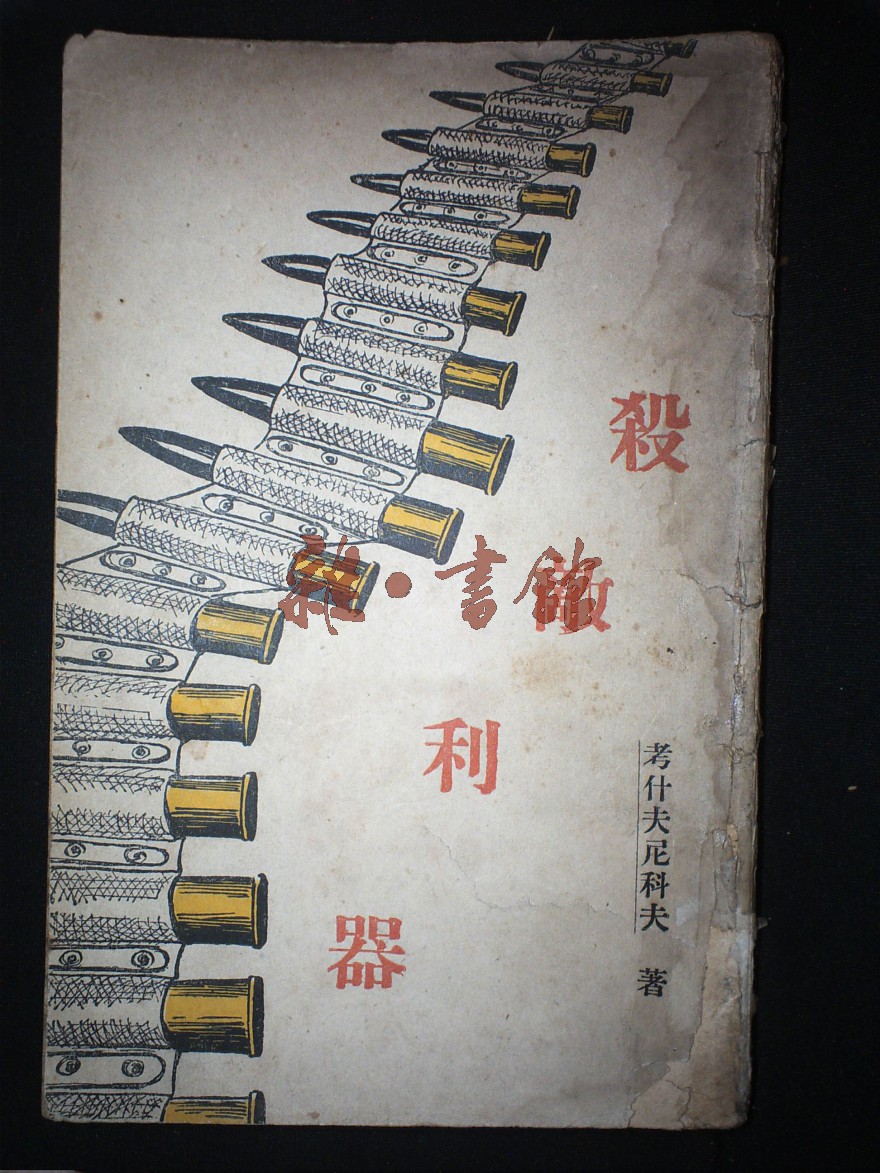 殺敵利器
考什夫尼科夫 著
雜·書館